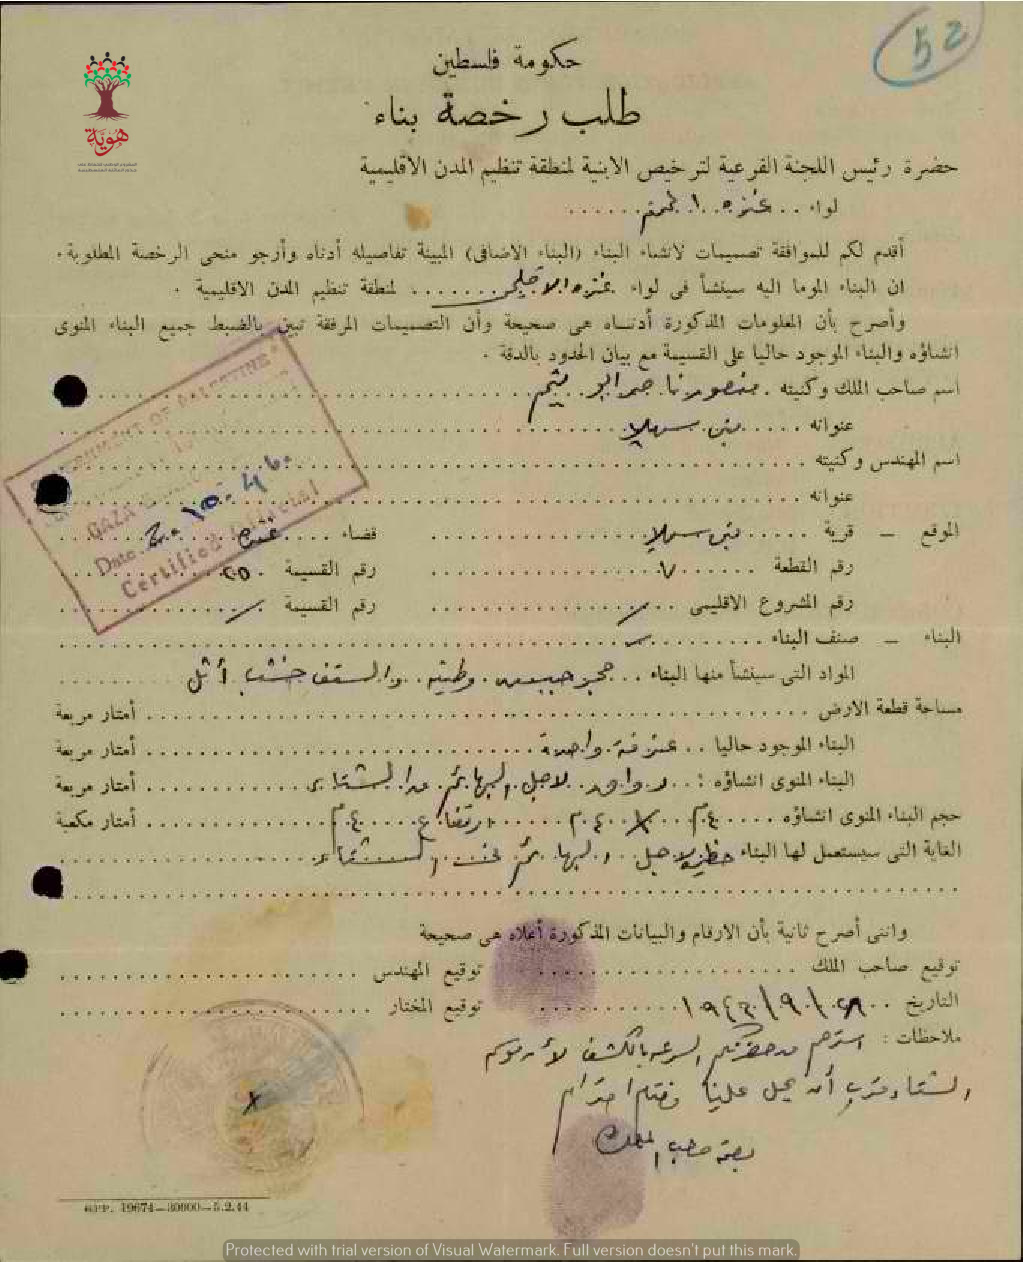 52
هوية
حكومة فلسطين
طلب رخصة بناء
حضرة رئيس اللجنة الفرعية لترخيص الابنية لمنطقة تنظيم المدن الاقليمية
لواء . . غزه . . . . . . . .
أقدم لكم للموافقة تصميمات لانشاء البناء (البناء الاضافى) المبينة تفاصيله أدناه وأرجو منحى الرخصة المطلوبة .
ان البناء الموما اليه سينشأ فى لواء غزه الاقليمى . . . . . . . لمنطقة تنظيم المدن الاقليمية .
وأصرح بأن المعلومات المذكورة أدناه هى صحيحة وأن التصميمات المرفقة تبين بالضبط جميع البناء المنوى
انشاؤه والبناء الموجود حاليا على القسيمة مع بيان الحدود بالدقة .
اسم صاحب الملك وكنيته . منصور
عنوانه . . . . . بنى سهيلا
اسم المهندس وكنيته
عنوانه
الموقع – قرية . . . . . بنى سهيلا . . . . . قضاء . . . . غزه
رقم القطعة . . . . . ٧ . . . . . رقم القسيمة . ٢٥
رقم المشروع الاقليمى . . / . . رقم القسيمة . . /
البناء – صنف البناء
المواد التى سينشأ منها البناء . . حجر وطينه . والسقف خشب أثل
مساحة قطعة الارض . . . . . أمتار مربعة
البناء الموجود حاليا . . غرفة واحدة . . . . . أمتار مربعة
البناء المنوى انشاؤه : . . لاجل البهائم . . أمتار مربعة
حجم البناء المنوى انشاؤه . . . . ٤م . × . ٤م . . . . ارتفاع . . . ٤م . . . أمتار مكعبة
الغاية التى سيستعمل لها البناء لاجل البهائم الشتاء
وانى أصرح ثانية بأن الارقام والبيانات المذكورة أعلاه هى صحيحة
توقيع صاحب الملك . . . . . توقيع المهندس
التاريخ ٢٨/٩/١٩٤٦ توقيع المختار
ملاحظات : استرحم من حضرتكم السرعه بالكشف لأن موسم
الشتاء قرب احترام
بصمة صاحب الملك
GOVERNMENT OF PALESTINE
GAZA
Date 2.10.46.
Certified
GPP. 19674–30000–5.2.44
Protected with trial version of Visual Watermark. Full version doesn't put this mark.